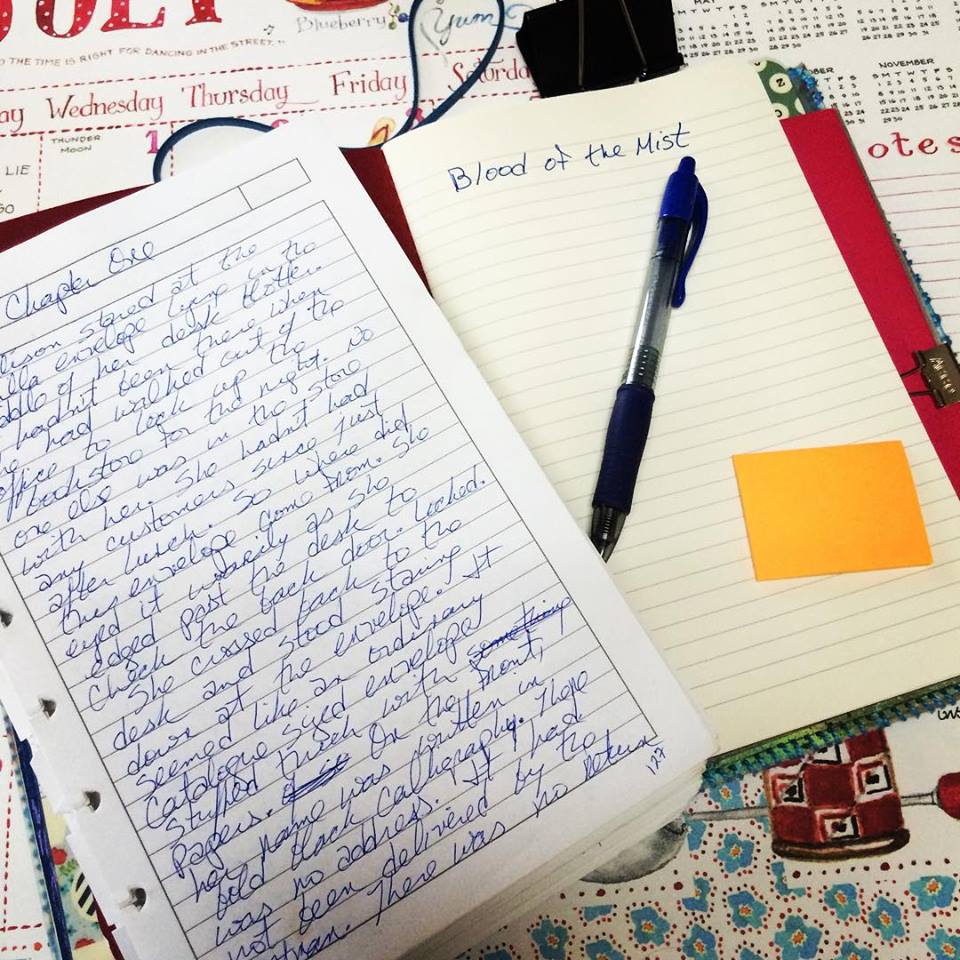 ULY
Blueberry
Yum
THE TIME IS RIGHT FOR DANCING IN THE STREET."
ay Wednesday Thursday Friday Saturda
THUNDER
MOON
LIE
GO
NOVEMBER
S M T W T F S
otes
Blood of the Mist
Chapter One
lison stared at the
illa envelope lying in the
ddle of her desk blotter.
hadn't been there when
he had walked out of the
office to lock up the
bookstore for the night. No
one else was in the store
with her. She hadn't had
any customers since just
after lunch. So where did
this envelope come from. She
eyed it warily as she
edged past the desk to
check the back door. Locked.
She crossed back to the
desk and stood staring
down at the envelope. It
seemed like an ordinary
catalogue sized envelope
stuffed thick with something
papers. On the front,
her name was written in
bold black calligraphy. There
was no address. It had
not been delivered by the
man. There was no return
127